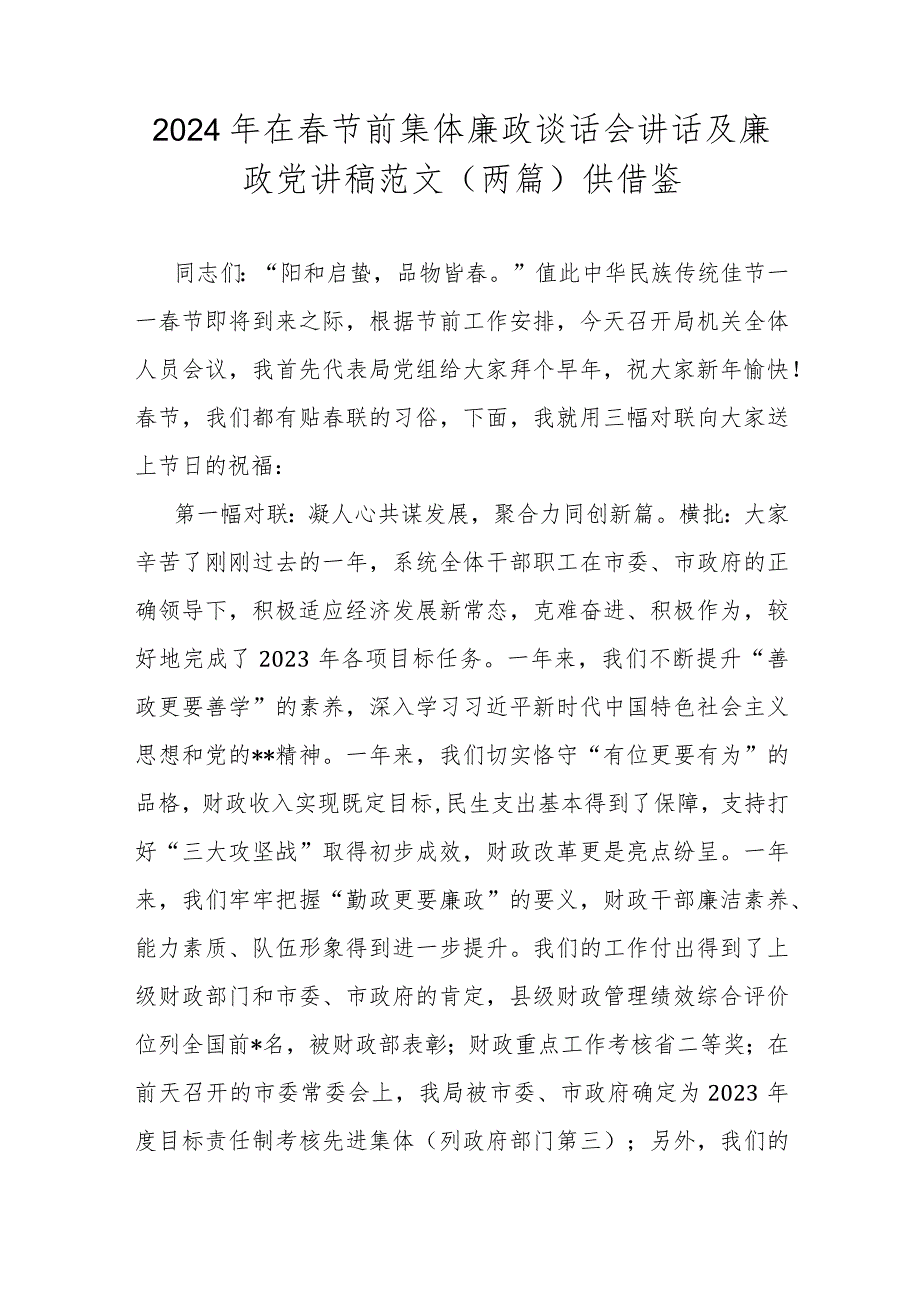 2024 年在春节前集体廉政谈话会讲话及廉
政党讲稿范文（两篇）供借鉴
同志们：“阳和启蛰，品物皆春。”值此中华民族传统佳节一
一春节即将到来之际，根据节前工作安排，今天召开局机关全体
人员会议，我首先代表局党组给大家拜个早年，祝大家新年愉快！
春节，我们都有贴春联的习俗，下面，我就用三幅对联向大家送
上节日的祝福：
第一幅对联：凝人心共谋发展，聚合力同创新篇。横批：大家
辛苦了刚刚过去的一年，系统全体干部职工在市委、市政府的正
确领导下，积极适应经济发展新常态，克难奋进、积极作为，较
好地完成了 2023 年各项目标任务。一年来，我们不断提升“善
政更要善学”的素养，深入学习习近平新时代中国特色社会主义
思想和党的**精神。一年来，我们切实恪守“有位更要有为”的
品格，财政收入实现既定目标,民生支出基本得到了保障，支持打
好“三大攻坚战”取得初步成效，财政改革更是亮点纷呈。一年
来，我们牢牢把握“勤政更要廉政”的要义，财政干部廉洁素养、
能力素质、队伍形象得到进一步提升。我们的工作付出得到了上
级财政部门和市委、市政府的肯定，县级财政管理绩效综合评价
位列全国前*名，被财政部表彰；财政重点工作考核省二等奖；在
前天召开的市委常委会上，我局被市委、市政府确定为 2023 年
度目标责任制考核先进集体（列政府部门第三）；另外，我们的